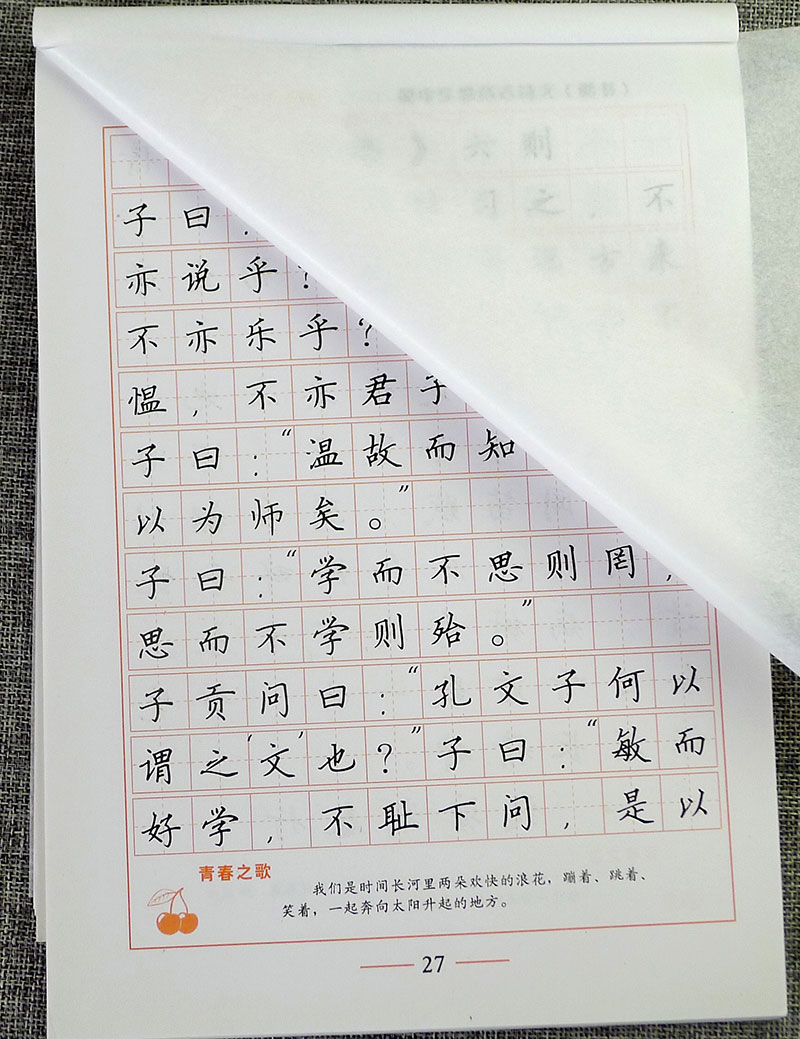 子曰：
亦说乎？
不亦乐乎？
愠，不亦君子
子曰：“温故而知
以为师矣。”
子曰：“学而不思则罔，
思而不学则殆。”
子贡问曰：“孔文子何以
谓之‘文’也？”子曰：“敏而
好学，不耻下问，是以
青春之歌
我们是时间长河里两朵欢快的浪花，蹦着、跳着、
笑着，一起奔向太阳升起的地方。
27